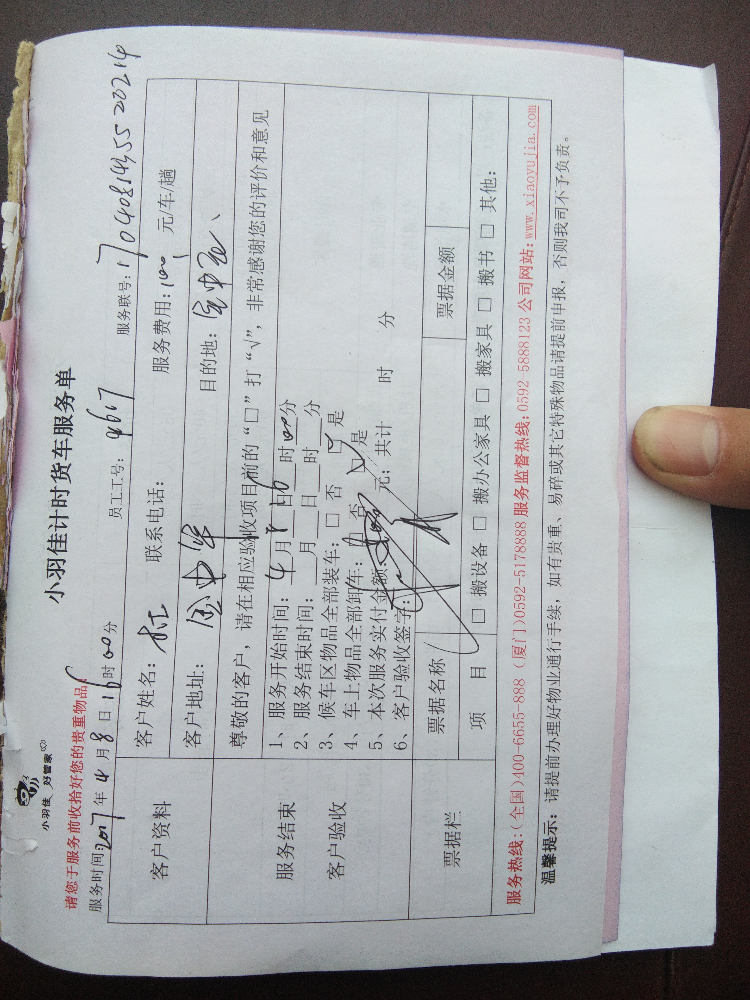 小羽佳 好管家
小羽佳计时货车服务单
请您于服务前收拾好您的贵重物品
服务时间:2017年4月8日16时00分 员工工号:4617 服务联号:170408145520214
客户资料
客户姓名: 联系电话: 服务费用:100 元/车/趟
客户地址: 目的地:
服务结束
客户验收
尊敬的客户,请在相应验收项目前的“□”打“√”,非常感谢您的评价和意见
1、服务开始时间:4月8日16时00分
2、服务结束时间:___月___日___时___分
3、候车区物品全部装车:□ 否 ☑ 是
4、车上物品全部卸车:□ 否 ☑ 是
5、本次服务实付金额: 元;共计 时 分
6、客户验收签字:
票据栏
票据名称 票据金额
项 目 □ 搬设备 □ 搬办公家具 □ 搬家具 □ 搬书 □ 其他:
服务热线:(全国)400-6655-888 (厦门)0592-5178888 服务监督热线:0592-5888123 公司网站:www.xiaoyujia.com
温馨提示:请提前办理好物业通行手续,如有贵重、易碎或其它特殊物品请提前申报,否则我司不予负责。